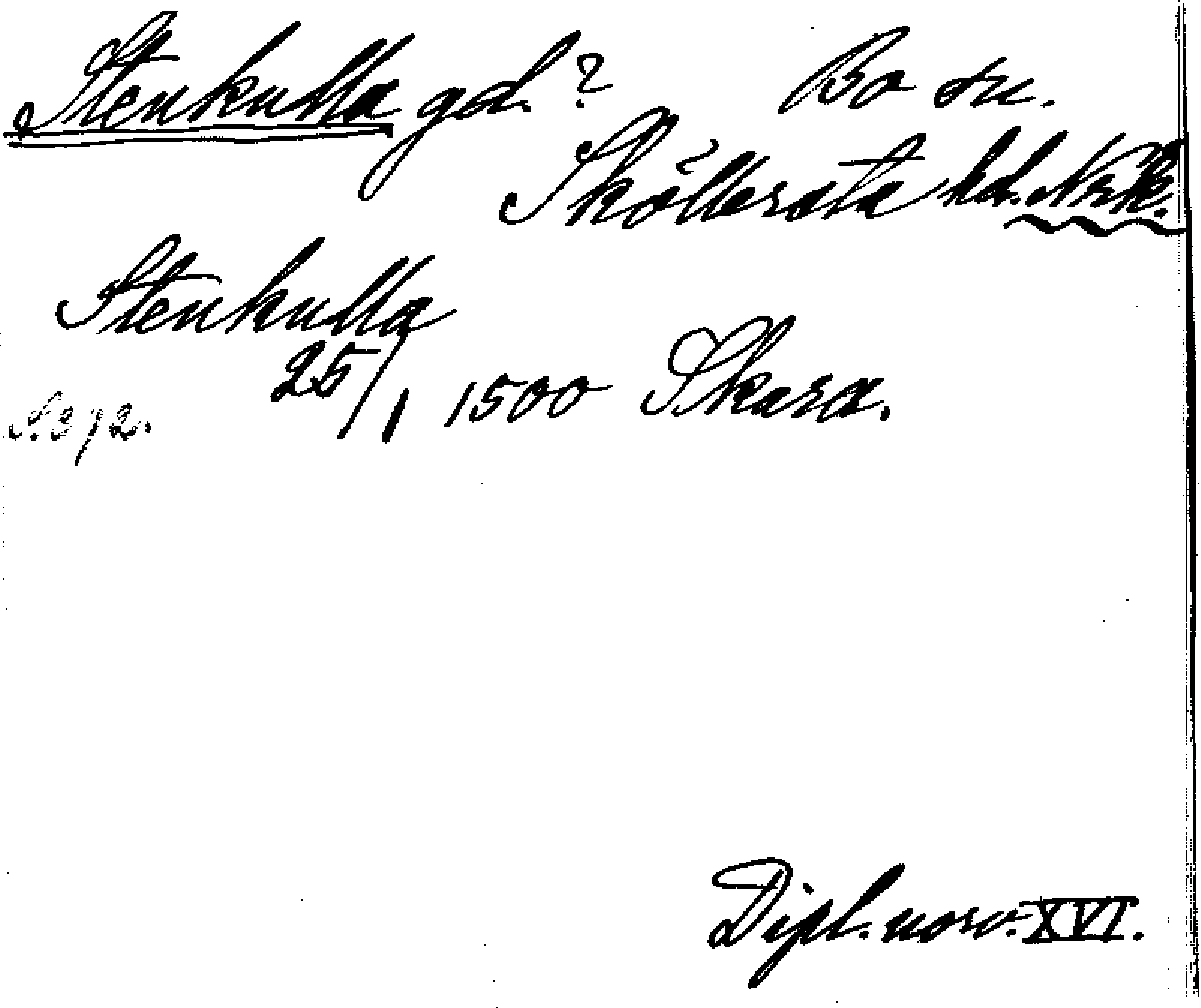 Stenkulla gd.? Bo sn.
Sköllersta hd. Nrk.
Stenkulla
25/1 1500 Skara.
S. 372.
Dipl. norv. XVI.